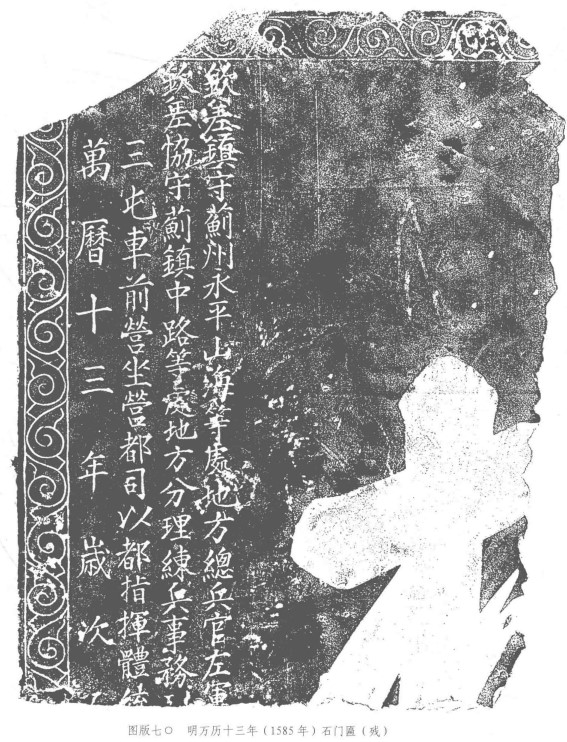 欽差鎮守薊州永平山海等處地方總兵官左軍
欽差協守薊鎮中路等處地方分理練兵事務
三屯車前營坐營都司以都指揮體統
萬曆十三年歲次
图版七〇 明万历十三年（1585年）石门匾（残）